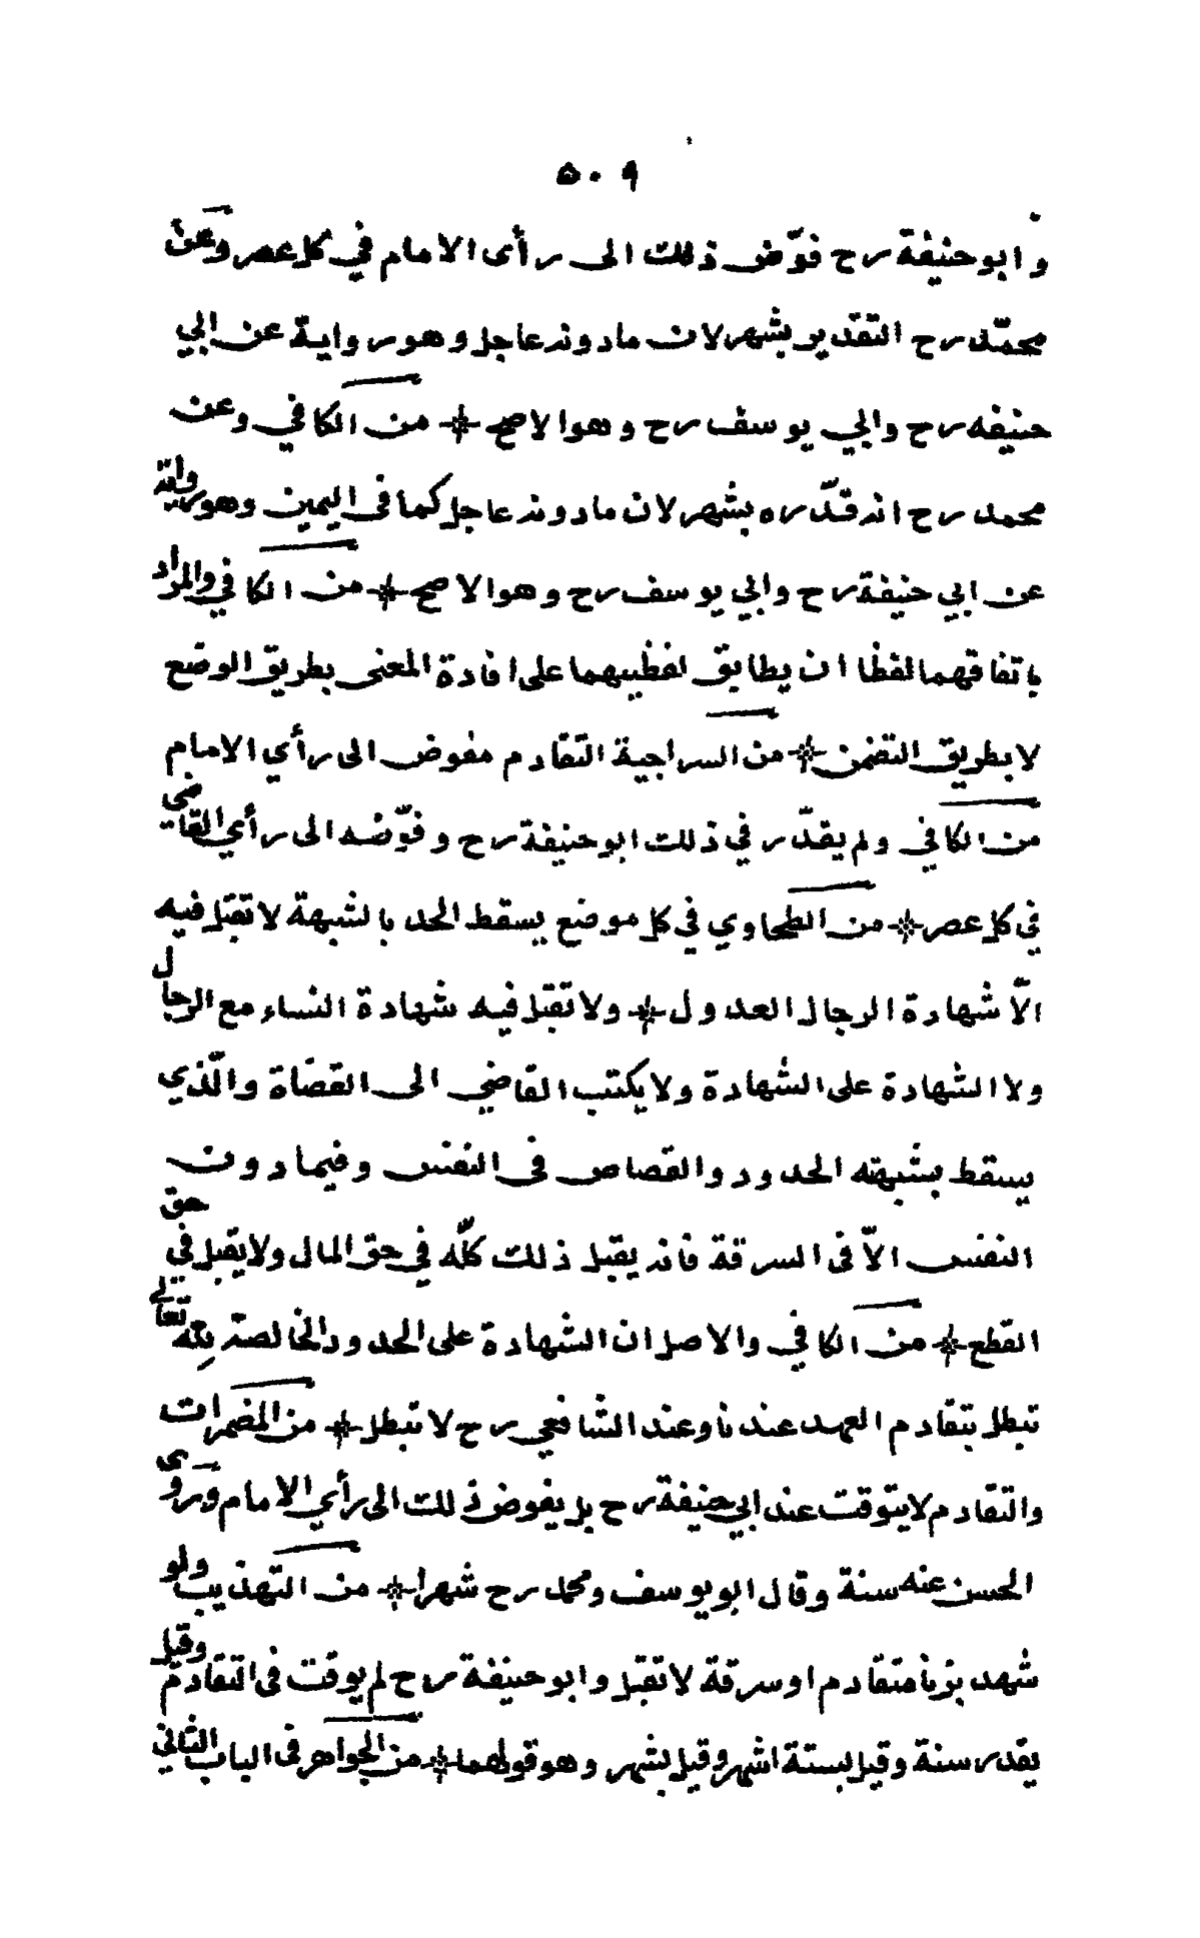 ٥٠٩
وابو حنيفة رح فوّض ذلك الى رأى الامام في كل عصر وعن
محمّد رح التقدير بشهر لان مادونه عاجل وهو رواية عن ابي
حنيفه رح وابي يوسف رح وهوالاصح * من الكافي وعن
محمد رح انه قدّره بشهر لان مادونه عاجل كما فى اليمين وهو رواية
عن ابي حنيفة رح وابي يوسف رح وهوالاصح * من الكافي والمراد
باتفاقهما لفظا ان يطابق لفظيهما على افادة المعنى بطريق الوضع
لا بطريق التضمن * من السراجية التقادم مفوض الى رأي الامام
من الكافي ولم يقدّر في ذلك ابو حنيفة رح وفوّضه الى رأي القاضي
في كل عصر * من الطحاوي في كل موضع يسقط الحد بالشبهة لا تقبل فيه
الاّ شهادة الرجال العدول * ولا تقبل فيه شهادة النساء مع الرجال
ولا الشهادة على الشهادة ولا يكتب القاضي الى القضاة والّذي
يسقط بشبهته الحدود والقصاص فى النفس وفيما دون
النفس الاّ فى السرقة فانه يقبل ذلك كلّه في حق المال ولا يقبل فى حق
القطع * من الكافي والاصل ان الشهادة على الحدود الخالصة لله تعالى
تبطل بتقادم العهد عندنا وعند الشافعي رح لا تبطل * من المضمرات
والتقادم لا يتوقت عند ابي حنيفة رح بل يفوض ذلك الى رأي الامام وروى
الحسن عنه سنة وقال ابو يوسف ومحمد رح شهرا * من التهذيب ولو
شهد بزنا متقادم او سرقة لا تقبل وابو حنيفة رح لم يوقت فى التقادم وقيل
يقدر سنة وقيل بستة اشهر وقيل بشهر وهو قولهما * من الجواهر فى الباب الثاني